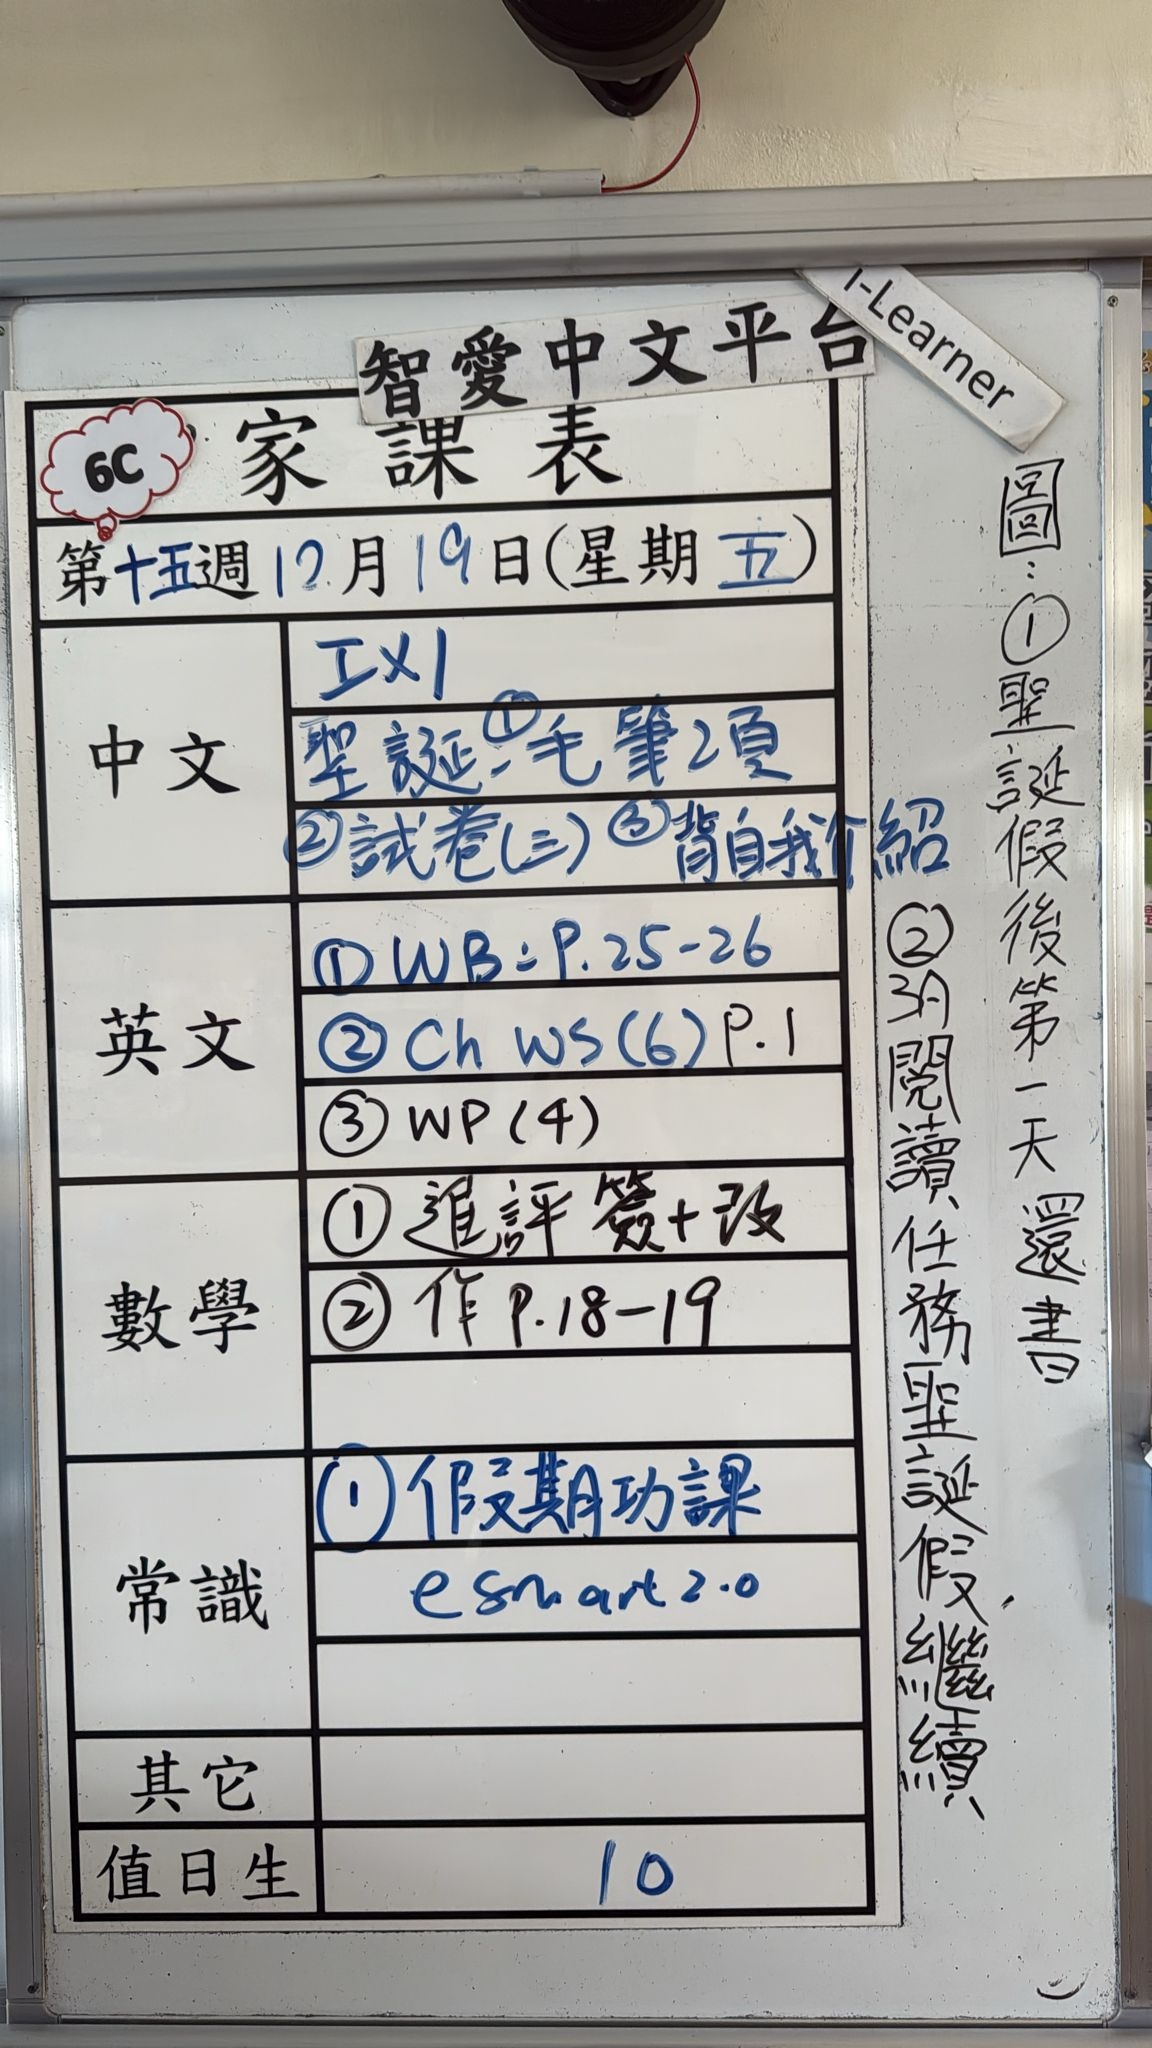 i-Learner
智愛中文平台
6C
家課表
第十五週12月19日(星期五)
中文
工X1
聖誕:①毛筆2頁
②試卷(三) ③背自我介紹
英文
① WB: P.25-26
② Ch WS(6) P.1
③ WP(4)
數學
① 進評 簽+改
② 作 P.18-19
常識
① 假期功課
esmart 2.0
其它
值日生
10
圖:①聖誕假後第一天還書
②3月閱讀任務聖誕假繼續